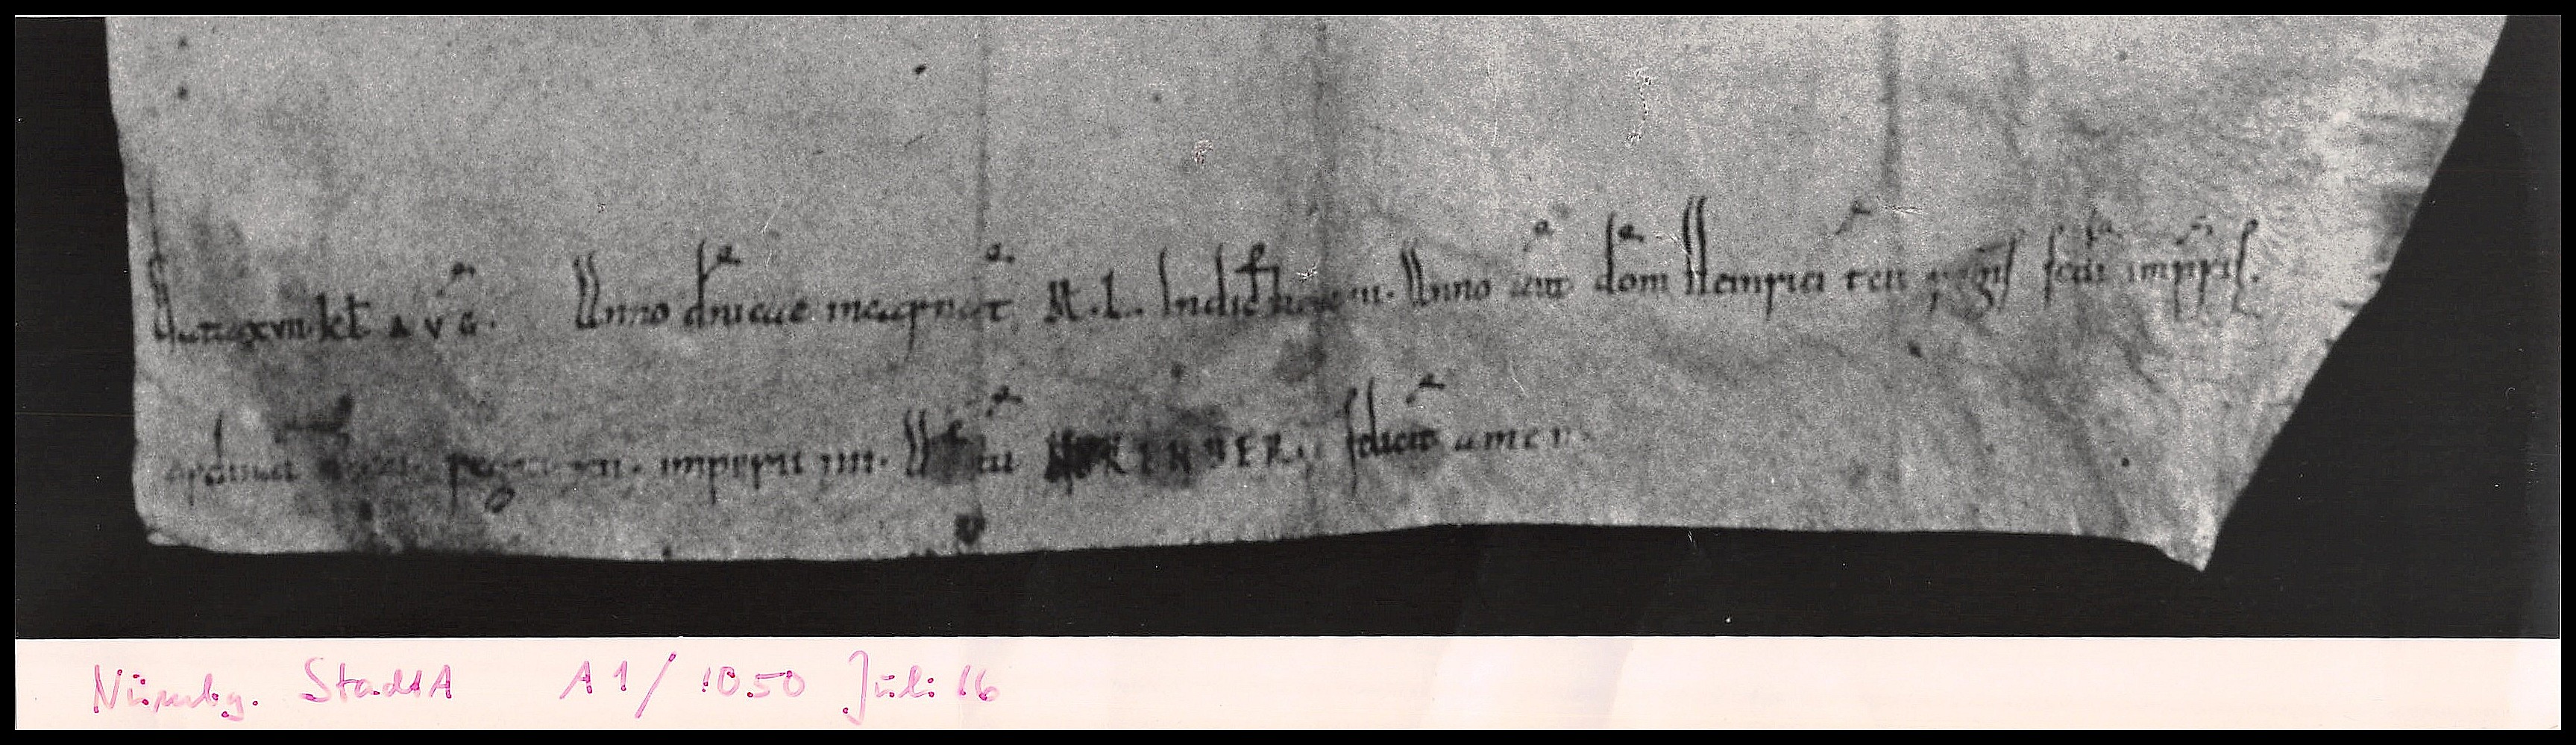 Data xvii. kl AVG. Anno dnice incarnat M. L. Indict iii. Anno aut dom Heinrici tercii regis secdi impris.
ordinat regni xii. imperii iiii. Actu NORENBERG feliciter amen.
Nürnbg. StadtA A1/ 1050 Juli 16